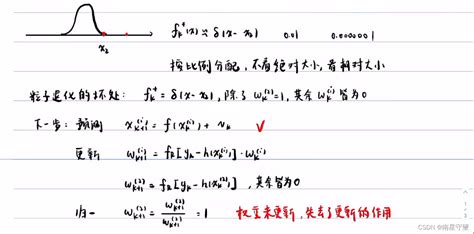 x₂ f_k⁺(x) ≈ δ(x-x₂) 0.01 0.000001
按比例分配，不看绝对大小，看相对大小
粒子退化的坏处： f_k⁺ = δ(x-x₂)，除了 w_k⁽²⁾=1，其余 w_k⁽ⁱ⁾ 皆为0
下一步：预测 x_{k+1}⁽ⁱ⁾ = f(x_k⁽ⁱ⁾) + v_k ✓
更新 w_{k+1}⁽ⁱ⁾ = f_R[y_k-h(x_k⁽ⁱ⁾)]·w_k⁽ⁱ⁾
w_{k+1}⁽²⁾ = f_R[y_k-h(x_k⁽²⁾)]，其余皆为0
归一 w_{k+1}⁽²⁾ = w_{k+1}⁽²⁾/w_{k+1}⁽²⁾ = 1 权重未更新，失去了更新的作用